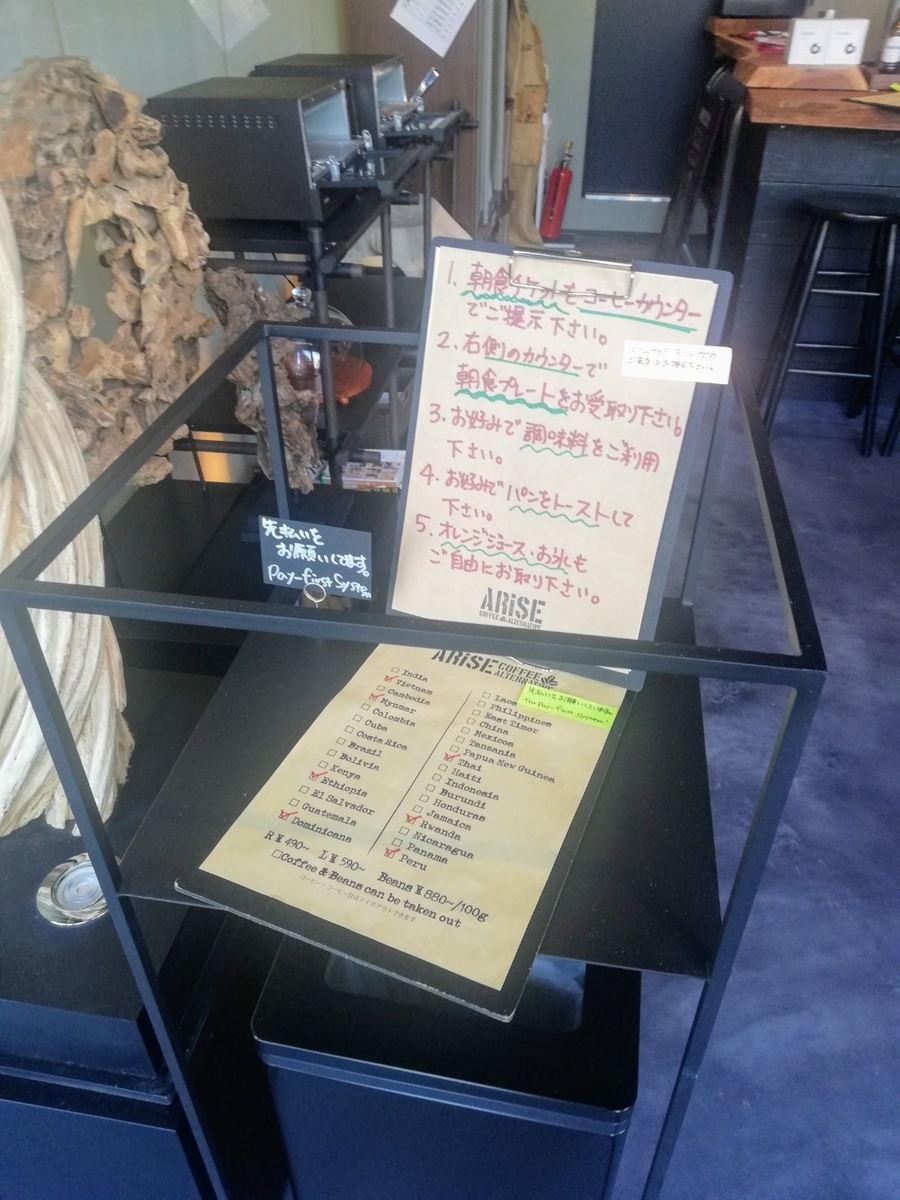 1. 朝食チケットをコーヒーカウンター
でご提示下さい。
2. 右側のカウンターで
朝食プレートをお受取り下さい。
3. お好みで調味料をご利用
下さい。
4. お好みでパンをトーストして
下さい。
5. オレンジジュース・お氷も
ご自由にお取り下さい。
ARiSE
COFFEE ALTERNATIVE
先払いを
お願いしてます。
Pay-first System
ARiSE COFFEE
ALTERNATIVE
先払いをお願いしています
The Pay-first System!
India
Vietnam
Cambodia
Mynmar
Colombia
Cuba
Costa Rica
Brazil
Bolivia
Kenya
Ethiopia
El Salvador
Guatemala
Dominicana
Laos
Philippines
East Timor
China
Mexicoa
Tanzania
Papua New Guinea
Thai
Haiti
Indonesia
Burundi
Honduras
Jamaica
Rwanda
Nicaragua
Panama
Peru
R ¥490~ L ¥590~ Beans ¥880~/100g
Coffee & Beans can be taken out
コーヒー・コーヒー豆はテイクアウトできます